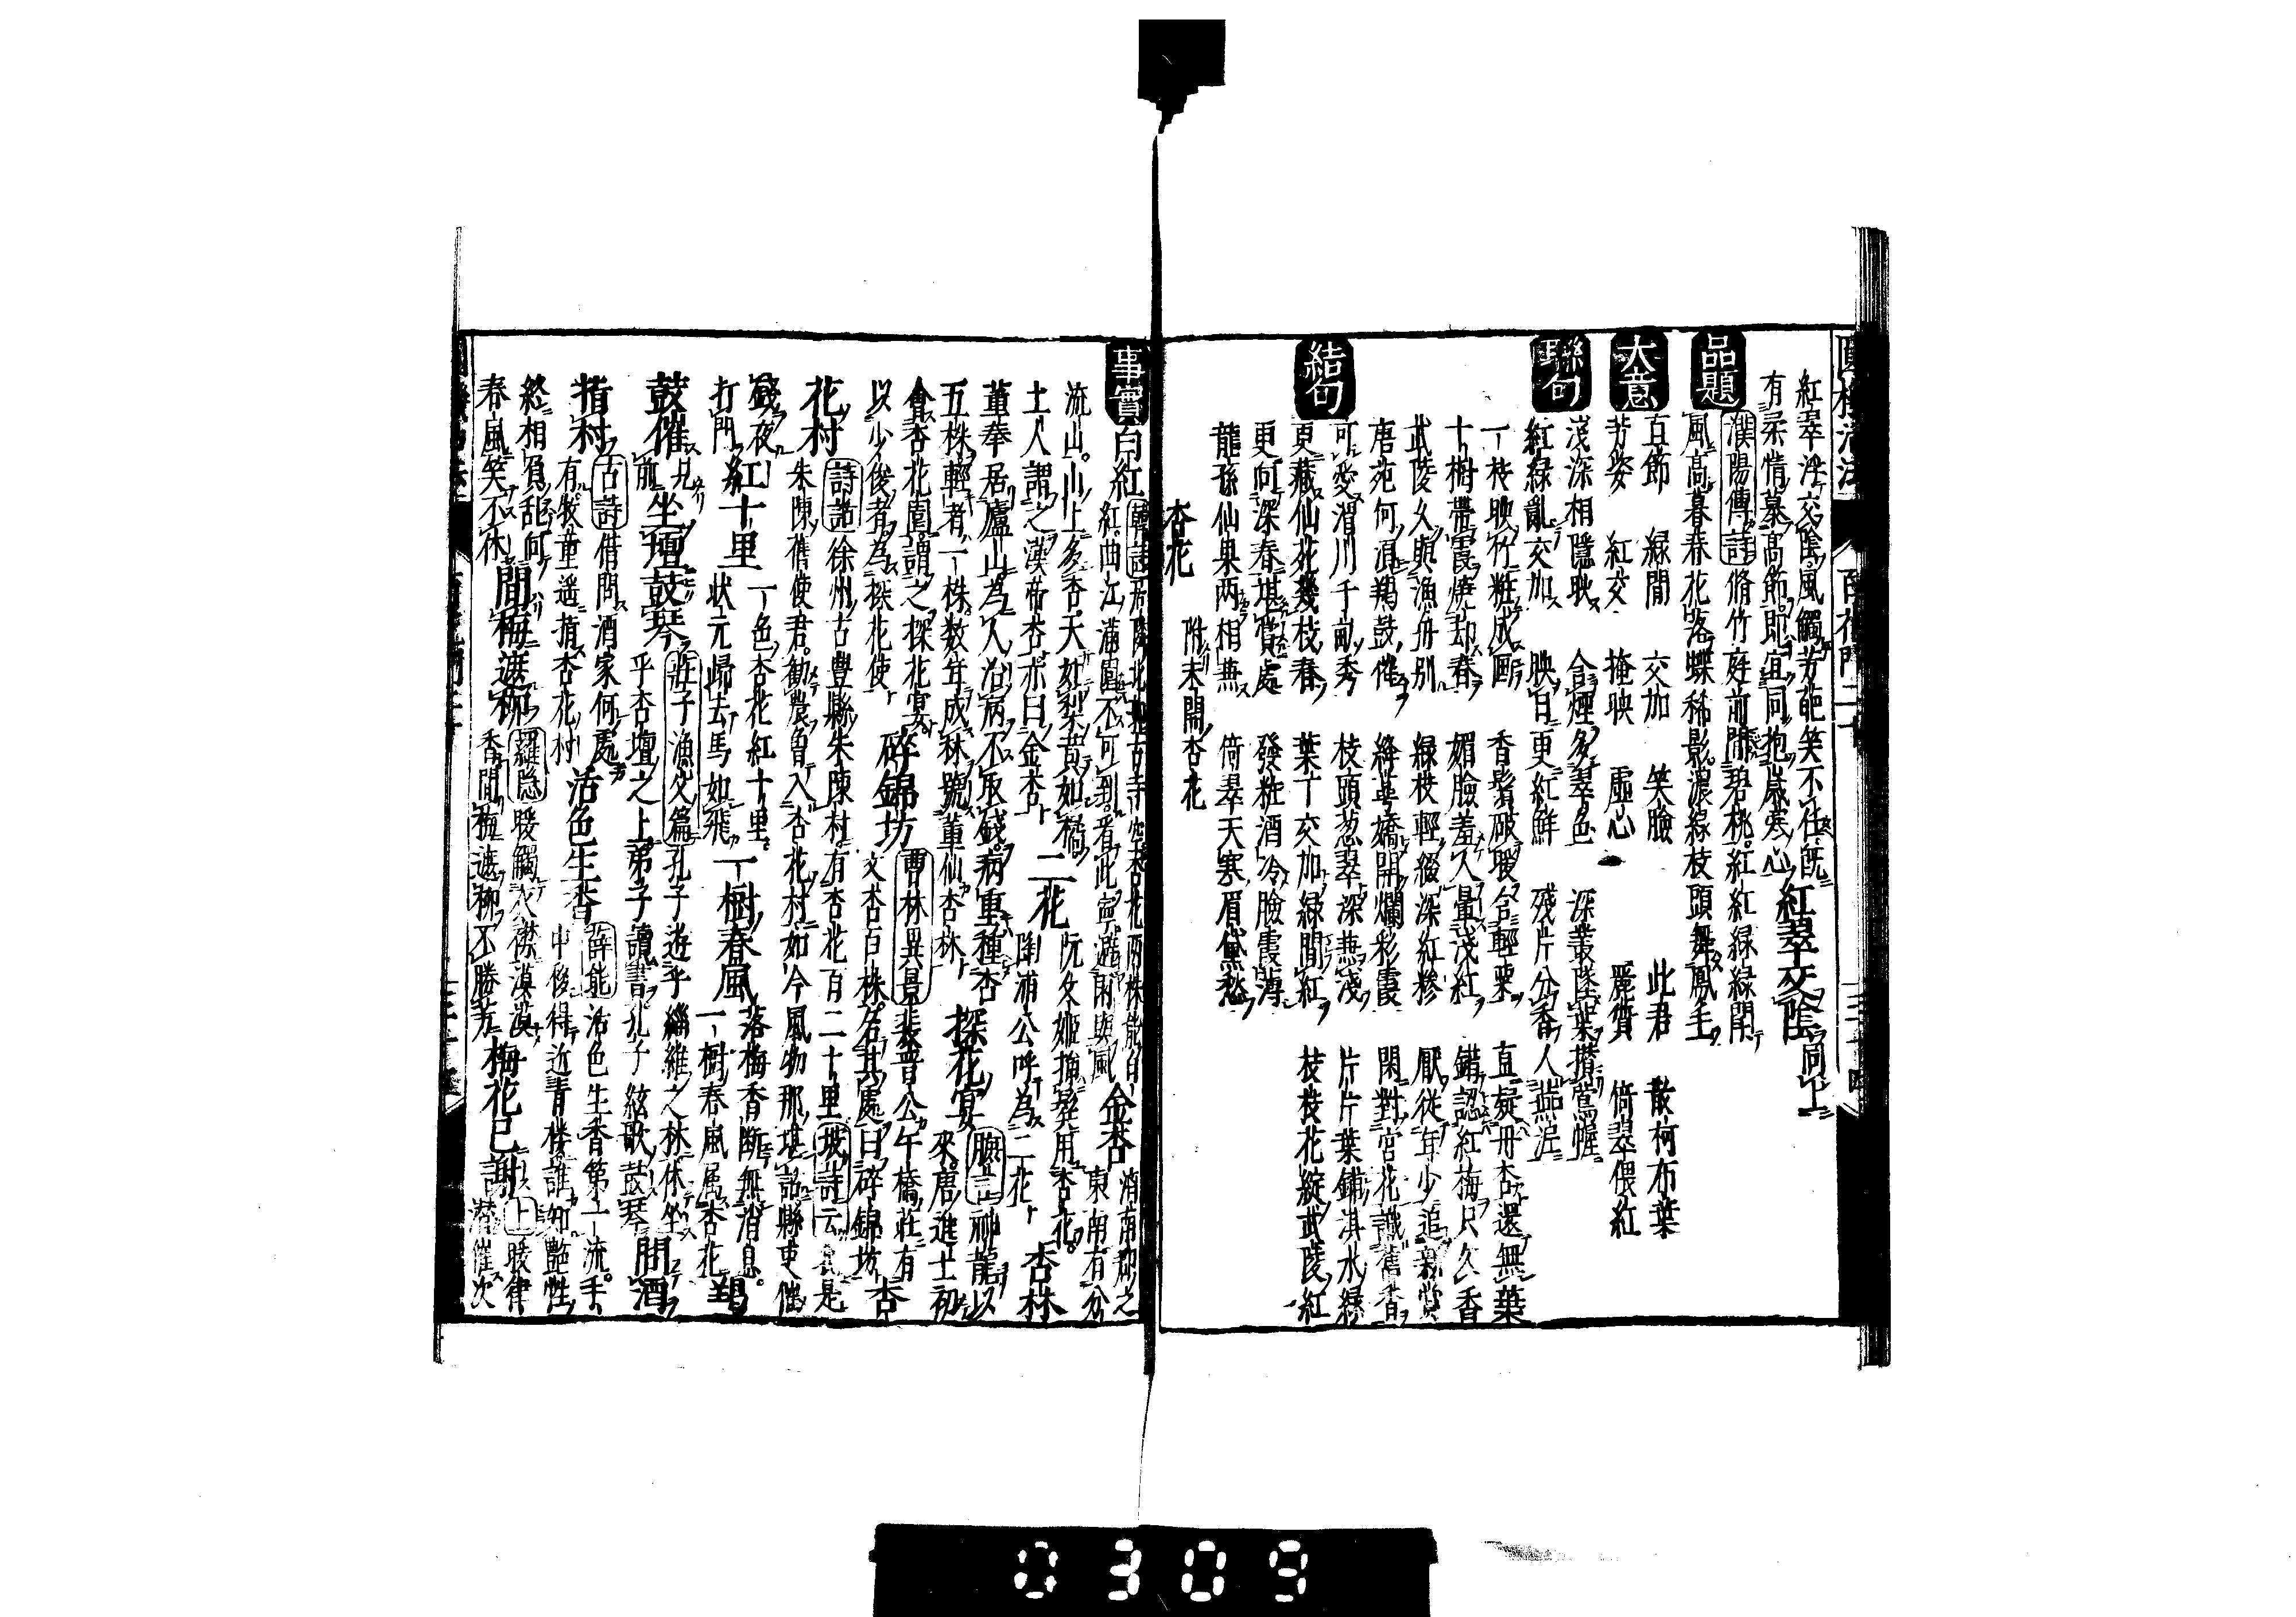 紅翠法交陰風觸芳葩笑不任既
有柔情慕高節即宜同抱歲寒心 紅翠交陰 同上
品題 濮陽傳詩 脩竹庭前間碧桃紅紅綠綠閙
風高暮春花落蝶稀影濃綠枝頭舞鳳毛
大意 直節 綠間 交加 笑臉 此君 散柯布葉
芳姿 紅交 掩映 虛心 麗質 倚翠偎紅
聯句 淺深相隱映 含煙多翠色 深叢墜葉攅鴬幄
紅綠亂交加 映日更紅鮮 殘片分香人燕泥
一枝映竹粧成画 香鬚破暖含輕粟 直疑丹杏還無葉
十樹帶霞燒却春 媚臉羞人暈淺紅 錯認紅梅只久香
武陵久與漁舟別 綠枝輕綴深紅糝 厭從年少追歡賞
唐苑何須羯鼓催 絳萼嬌開爛彩霞 閑對宮花識舊香
可愛渭川千畝秀 枝頭葱翠深燕淺 片片葉鋪淇水綠
結句 更藏仙花幾枝春 葉下交加綠間紅 枝枝花綻武陵紅
更何深春堪賞處 發粧酒冷臉霞薄
龍孫仙果两相燕 倚翠天寒眉黛愁
杏花 附未開杏花
事實 白紅 韓詩 居隣北郭古寺空杏花兩株能白
紅曲江滿園不可到看此寧避雨與風 金杏 濟南郡之
東南有分
流山山上多杏大如梨黄如橘
土人謂之漢帝杏亦曰金杏 二花 阮文姬插髮用杏花
陶浦公呼為二花 杏林
董奉居廬山為人治病不取錢病重種杏
五株輕者一株数年成林號董仙杏林 探花宴 膽言 神龍以
來唐進士初
會杏花園謂之探花宴
以少俊者為探花使 碎錦坊 曹林異景 裴晋公午橋莊有
文杏百株名其處曰碎錦坊 杏
花村 詩話 徐州古豐縣朱陳村有杏花百二十里 坡詩云 我是
朱陳舊使君勸農曾入杏花村如今風物那堪詔縣吏催
錢夜
打門 紅十里 一色杏花紅十里
状元歸去馬如飛 一樹春風 落梅香斷無消息
一樹春風属杏花 羯
鼓催 見
前 坐壇鼓琴 莊子漁父篇 孔子遊乎緇維之林休坐
乎杏壇之上弟子讀書孔子絃歌鼓琴 問酒
指村 古詩 借問酒家何處
有牧童遥指杏花村 活色生香 薛能 活色生香第一流手
中移得近青樓誰知艶性
終相負乱向
春風笑不休 間梅遮柳 羅隐 暖觸衣襟漠漠
香間梅遮柳不勝芳 梅花已謝 上 暖律
潜催次